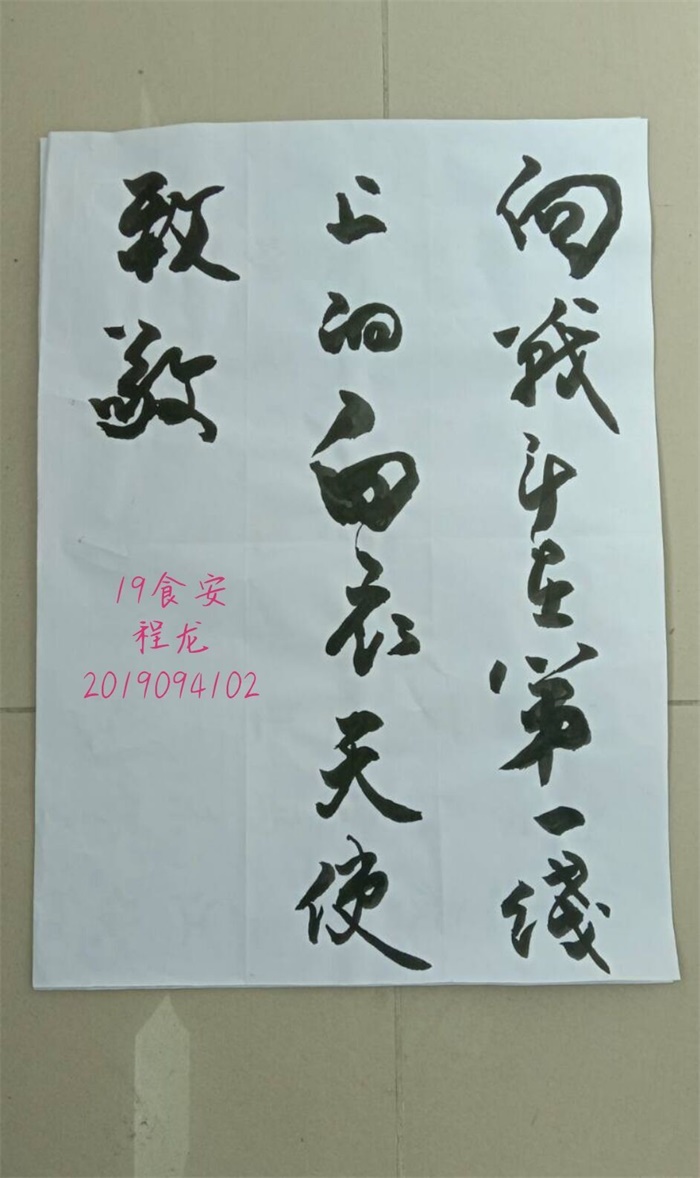 向战斗在第一线
上的白衣天使
致敬
19食安
程龙
2019094102